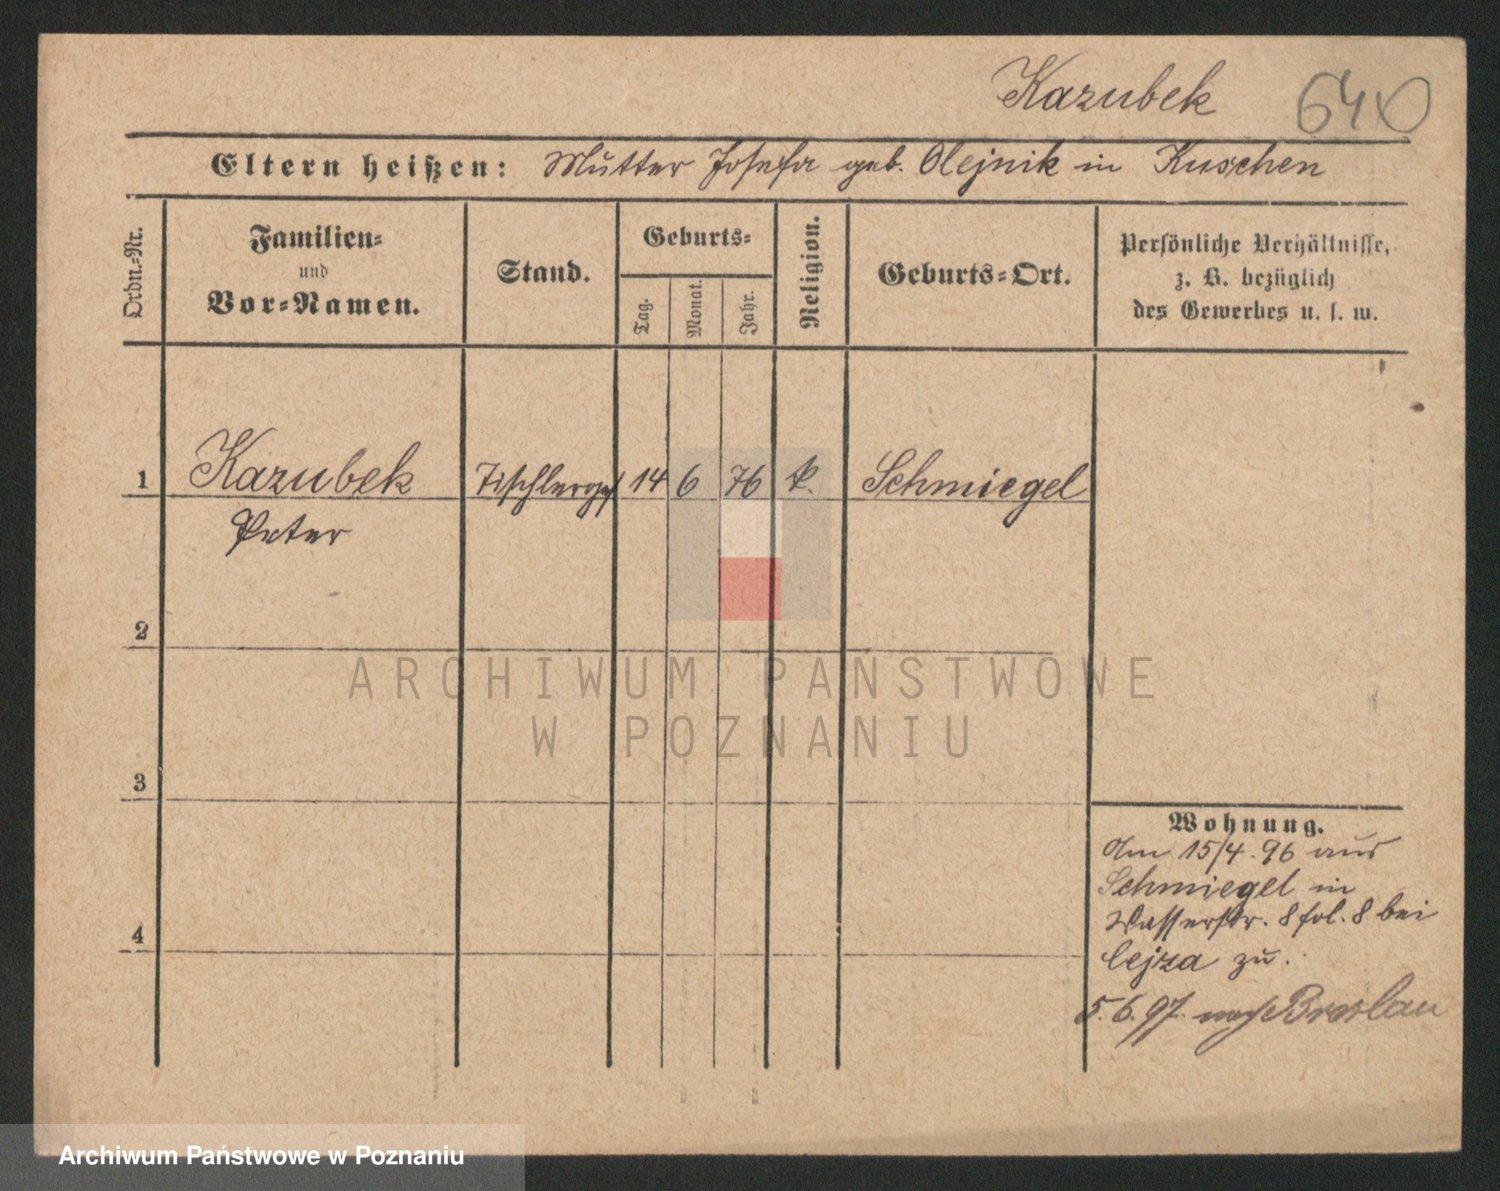 Kazubek 640
Eltern heißen: Mutter Josefa geb. Olejnik in Kuschen
Ordn.-Nr.
Familien-
und
Vor-Namen.
Stand.
Geburts-
Tag.
Monat.
Jahr.
Religion.
Geburts-Ort.
Persönliche Verhältnisse,
z. B. bezüglich
des Gewerbes u. s. w.
1 Kazubek Tischlerges 14 6 76 k. Schmiegel
Peter
2
3
4
Wohnung.
Am 15/4. 96 aus
Schmiegel in
Wasserstr. 8 fol. 8 bei
Cejza zu.
5. 6. 97. nach Breslau
ARCHIWUM PAŃSTWOWE
W POZNANIU
Archiwum Państwowe w Poznaniu